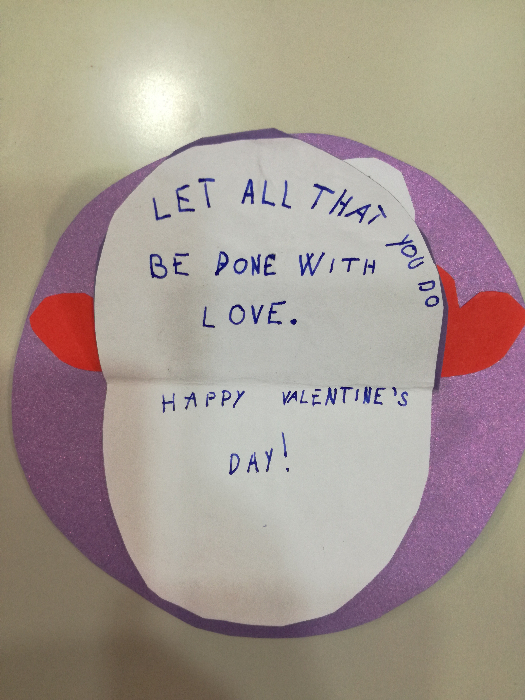 LET ALL THAT YOU DO
BE DONE WITH
LOVE.
HAPPY VALENTINE'S
DAY!